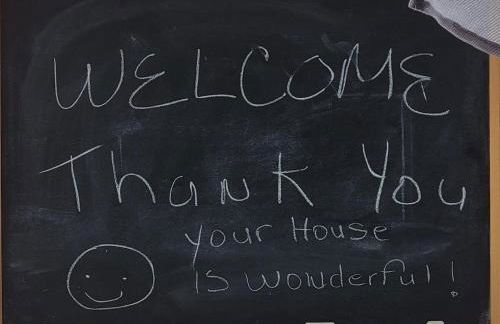 WELCOME
Thank You
your House
is wonderful!